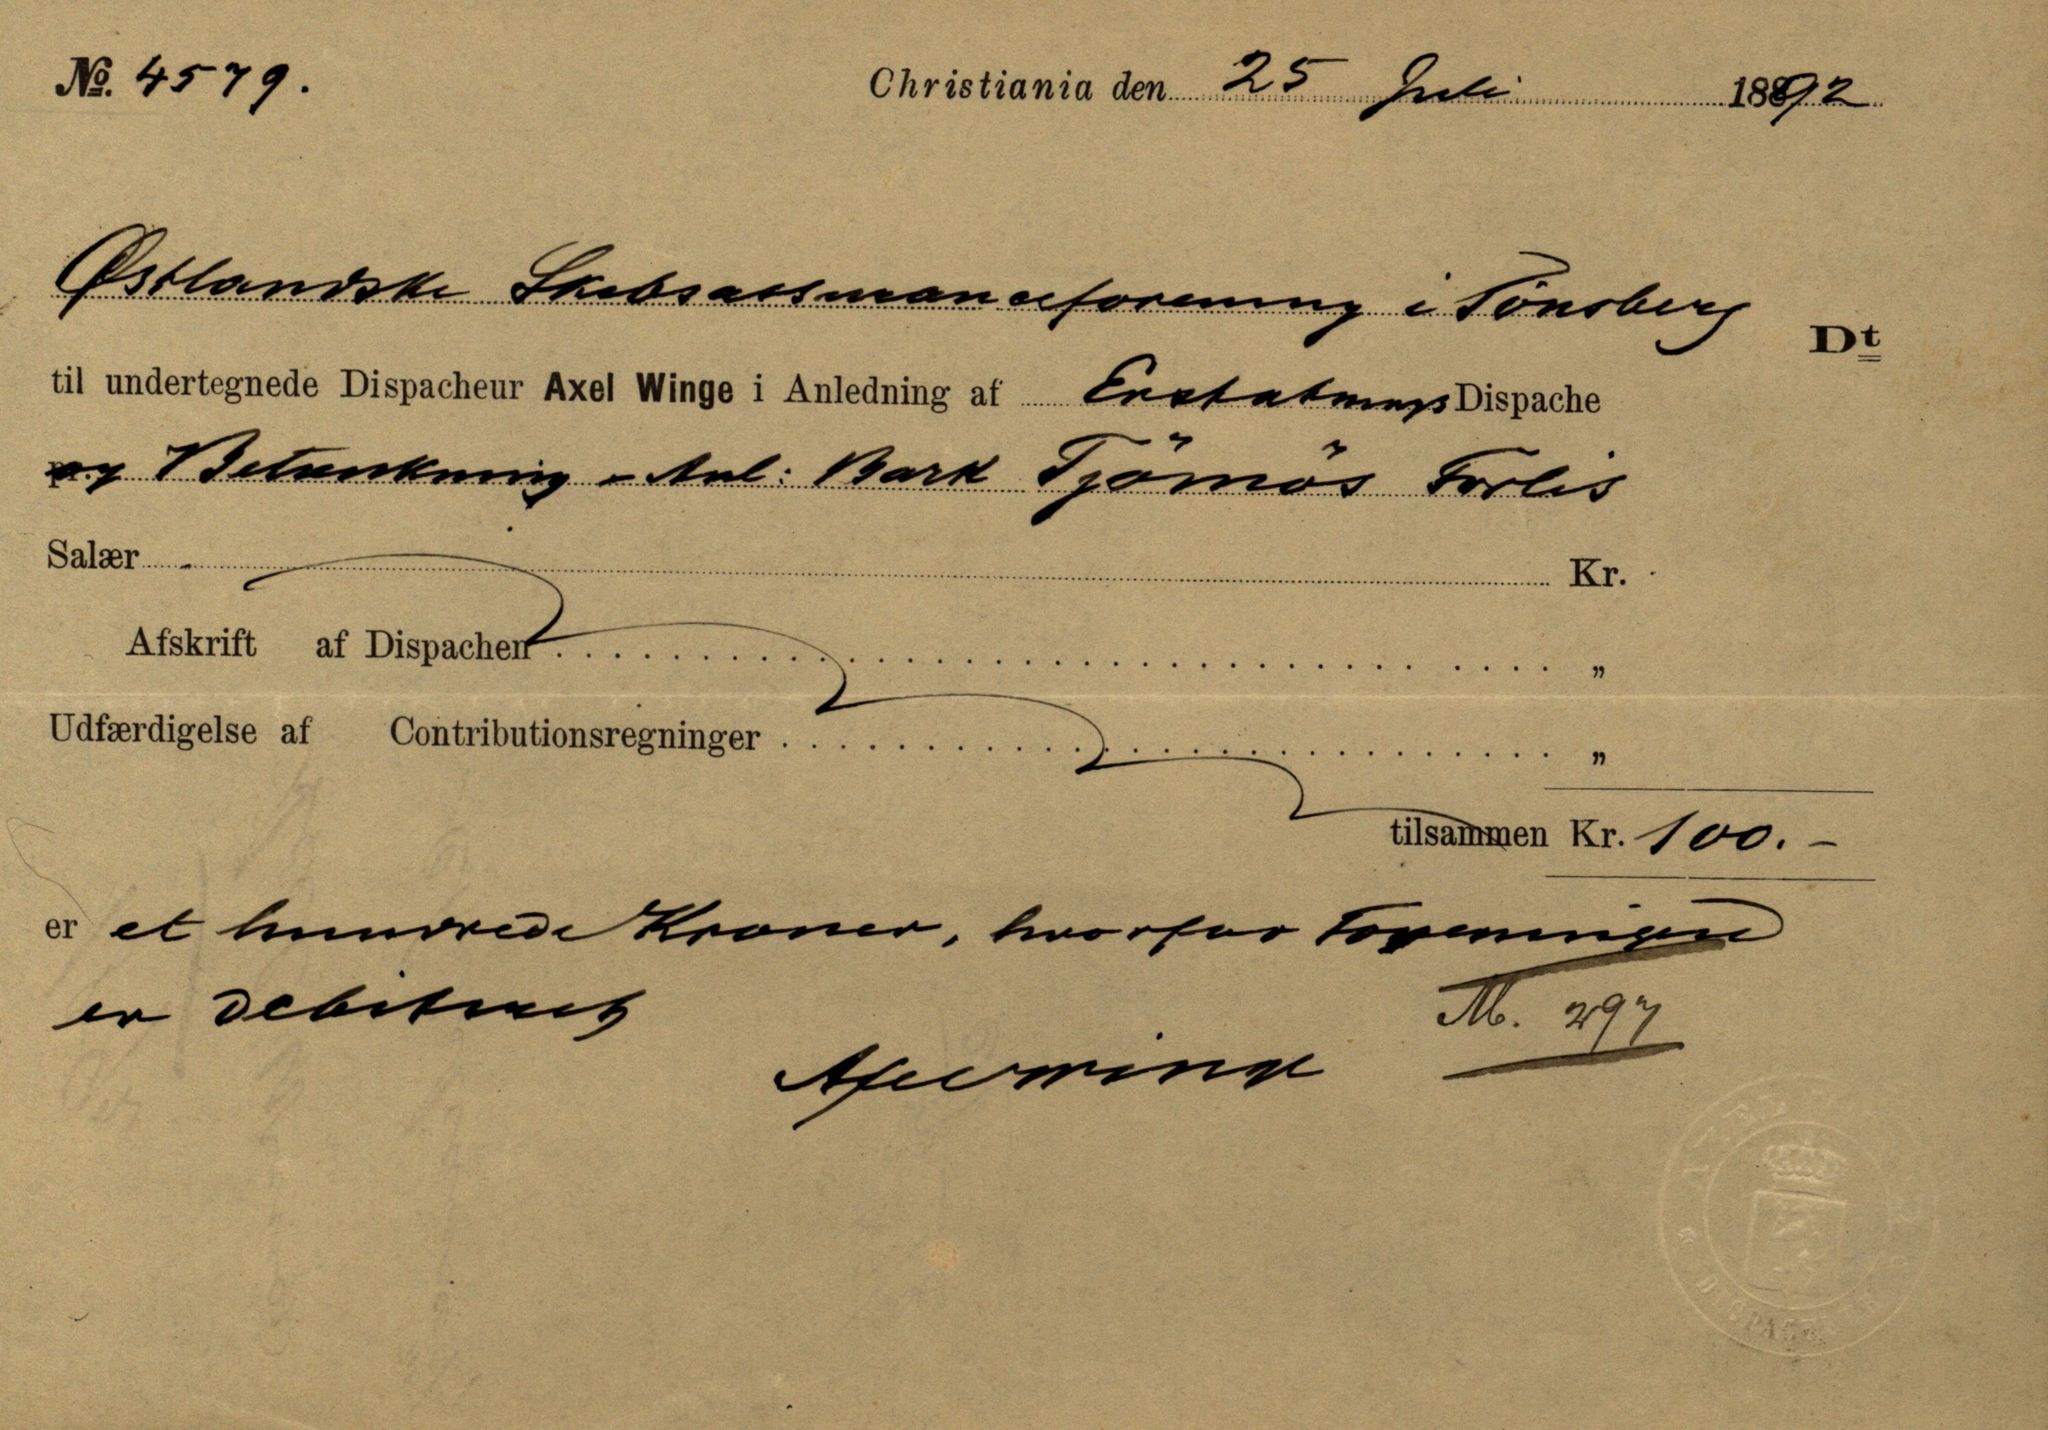 No. 4579.
Christiania den 25 Juli 1892
Østlandske Skibsassuranceforening i Tönsberg
Dt
til undertegnede Dispacheur Axel Winge i Anledning af Erstatnings Dispache
og Betænkning Anl: Bark Tjömös Forlis
Salær Kr.
Afskrift af Dispachen „
Udfærdigelse af Contributionsregninger „
tilsammen Kr. 100.-
er et hundrede Kroner, hvorfor Foreningen
er debiteret
M. 297
Axel Winge